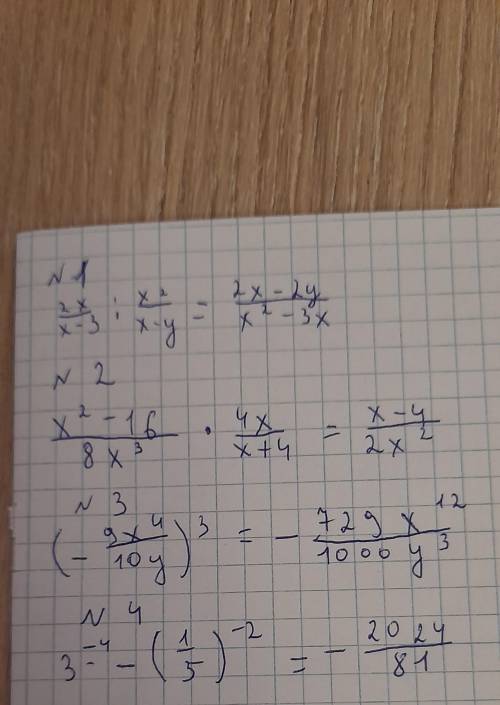 № 1
2x/(x-3) : x²/(x-y) = (2x-2y)/(x²-3x)
№ 2
(x²-16)/(8x³) · 4x/(x+4) = (x-4)/(2x²)
№ 3
(-9x⁴/(10y))³ = -729x¹²/(1000y³)
№ 4
3⁻⁴ - (1/5)⁻² = -2024/81